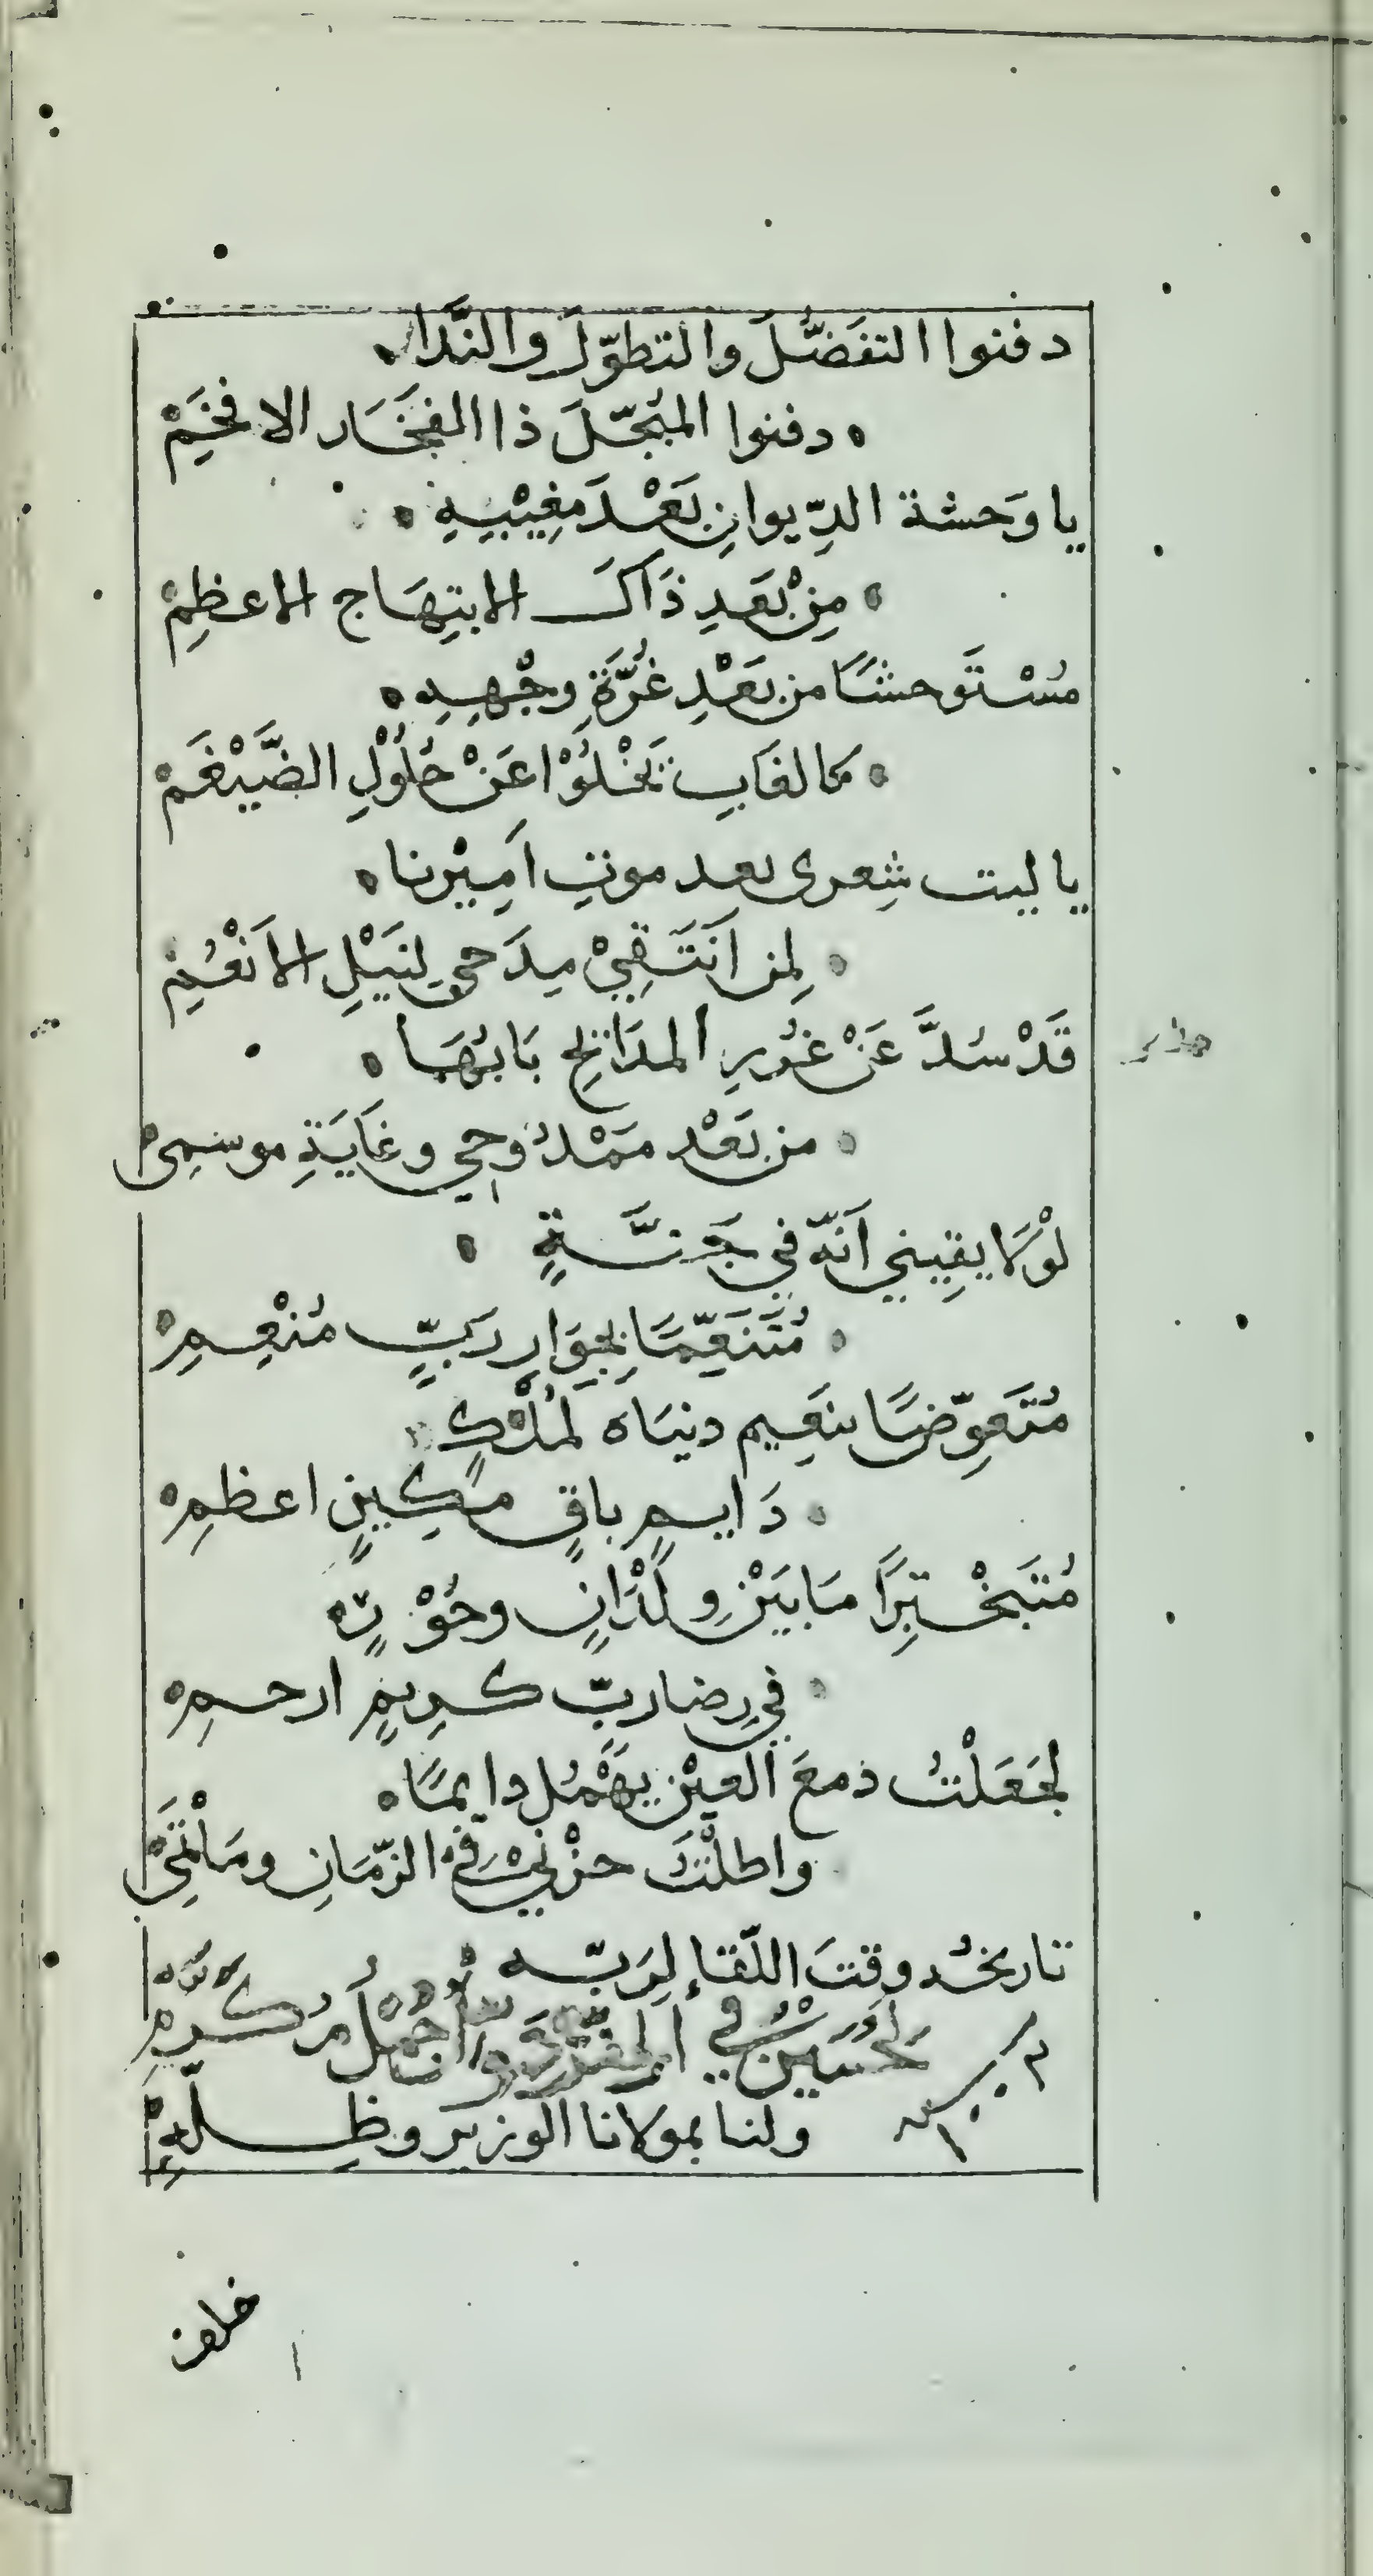 دفنوا التفَضُّلَ والتطوّلَ والنَّدَا
دفنوا المبُجّلَ ذا الفخَار الافخَمِ
يا وَحشة الدِّيوانِ بَعْدَ مَغِيْبِهِ
مِنْ بَعَدِ ذَاكَ الابتِهَاج الاعظِمِ
مُسْتَوحشًا من بَعْدِ غُرَّةِ وجْهِهِ
كالغَابِ تَخْلُوْا عَنْ حُلُوْلِ الضَّيْغَمِ
ياليت شِعرى بعد موتِ اَمِيْرنا
لِمن اَنتَقِيْ مِدَحي لِنَيْلِ الاَنْعُمِ
قَدْ سُدَّ عَنْ غُررِ المدَائحِ بَابُهَا
من بَعْد مَمْدُوحي وغَايَةِ موسِمى
لوْلَا يقِيني اَنّه في جَنَّةٍ
مُتَنَعِّمًا بجِوَارِ رَبٍّ مُنْعِمِ
مُتَعوِّضًا بنَعِيم دنيَاه لمُلْكٍ
دَايمٍ باقٍ مَكِينٍ اعظمِ
مُتَبَخْتِرًا مَا بَيَنْ وِلْدَانٍ وحُوْرٍ
في رِضا ربّ كريمٍ ارحمِ
لجَعَلْتُ دمعَ العيْن يَهْمُل دايمًا
واطلْتُ حزْنِيْ في الزّمَانِ ومَاْتَمَى
تاريخُه وقتَ اللّقاءِ لِرَبّه
لحُسَيْنُ في اَجْمَلُ مُكرَّمِ
ولنا بمولانا الوزير وظِلّهِ
خلفٌ